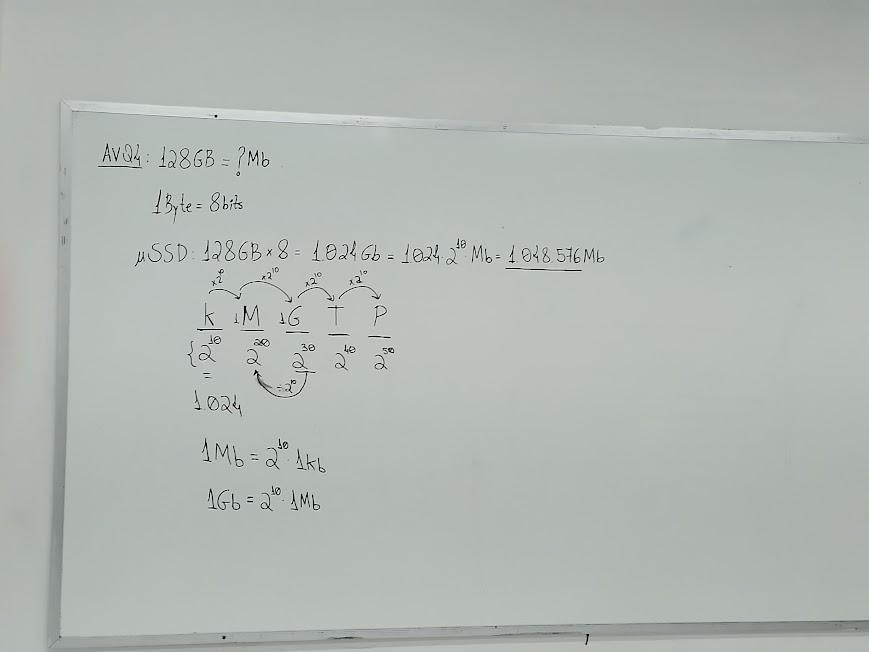 AVQ4: 128GB = ? Mb
1Byte = 8bits
μSSD: 128GB × 8 = 1.024Gb = 1024 · 2¹⁰ Mb = 1.048.576 Mb
×2¹⁰ ×2¹⁰ ×2¹⁰ ×2¹⁰
k 1M 1G T P
{2¹⁰ 2²⁰ 2³⁰ 2⁴⁰ 2⁵⁰
= ÷2¹⁰
1.024
1Mb = 2¹⁰ · 1kb
1Gb = 2¹⁰ · 1Mb